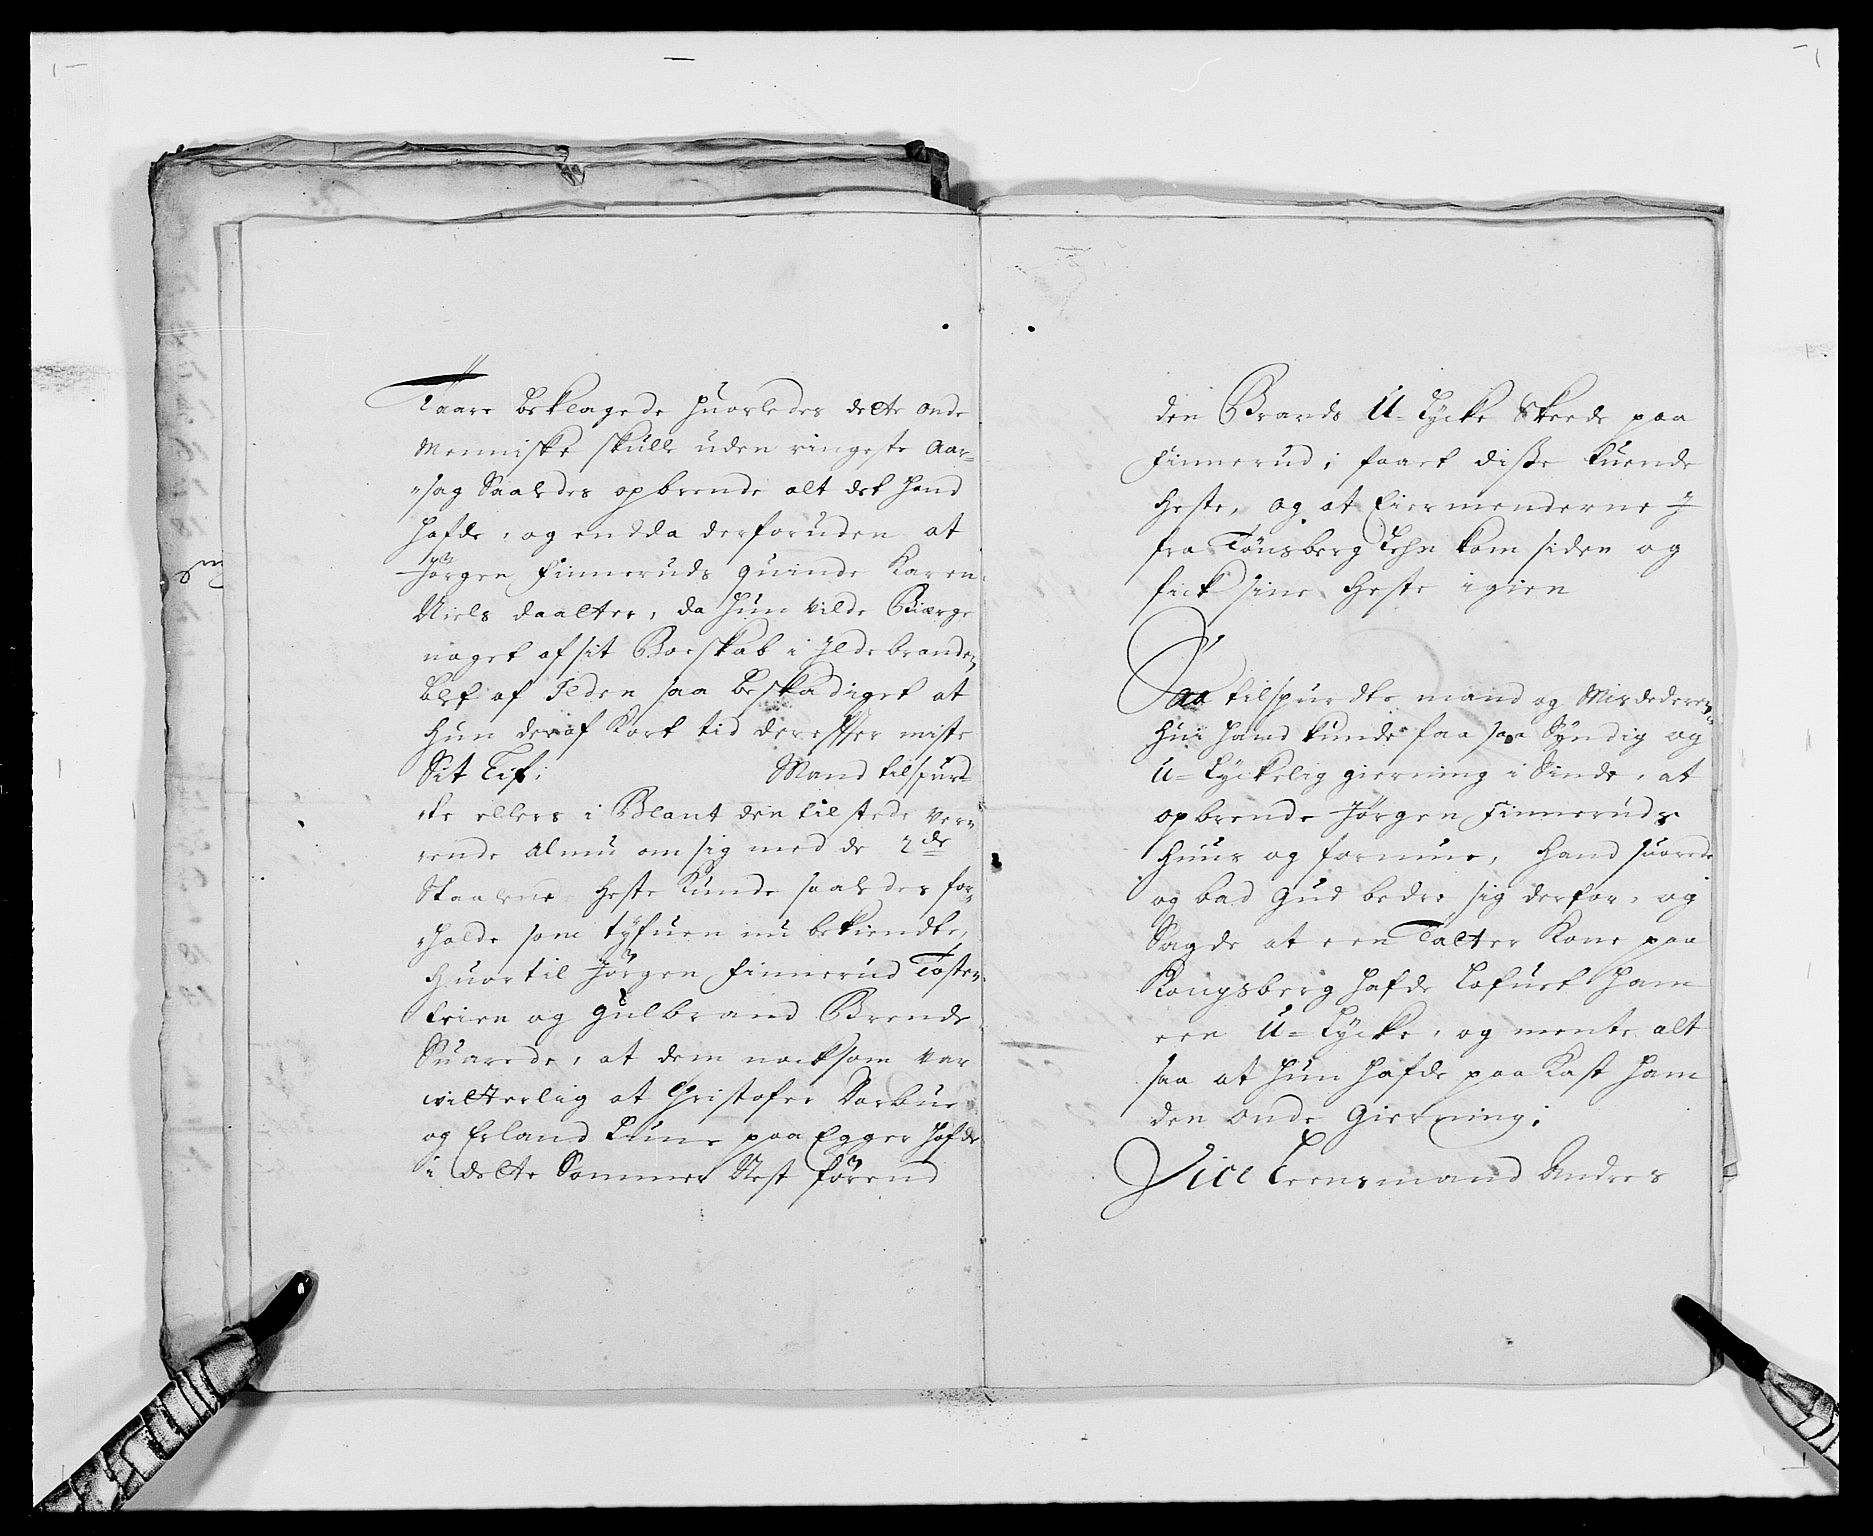 Taare beklagede huorledes dette onde
Menniske skulle uden ringeste Aar-
sag Saaledes opbrende alt det hand
hafde, og endda derforuden at
Jørgen Finneruds quinde Karen
Niels daatter, da hun vilde Biærge
noget af sit Boeskab i Ildebranden,
blef af Ilden saa beskadiget at
hun deraf kort tid derefter miste
Sit Lif; Mand tilspurd-
te ellers i Blant den tilstede ver-
rende Almu om sig med de 2de
Staalne heste kunde saaledes for-
holde som tyfuen nu bekiendte,
huortil Jørgen Finnerud Tosten
Eeien og Gulbrand Brende
Suarede, at dem nocksom var
witterlig at Christofer Sorbue
og Erland Lune paa Egger hafde
i dette Sommer Nest førend
den Brands U-Lycke Skeede paa
Finnerud; faaet disse tuende
heste, og at Eiermenderne
fra Tønsberg Lehn kom siden og
fick sine heste igien
Saa tilspurdte mand og Misdederen
hui hand kunde faa saa Syndig og
U-Lyckelig gierning i Sinde, at
opbrende Jørgen Finneruds
huus og formue, hand suarede
og bad Gud bedre sig derfor, og
Sagde at een Tatter Kone paa
Kongsberg hafde Lofuet ham
een U-Lycke, og mente alt
saa at hun hafde paa Kast ham
den onde Gierning;
Vice Leensmand Anders